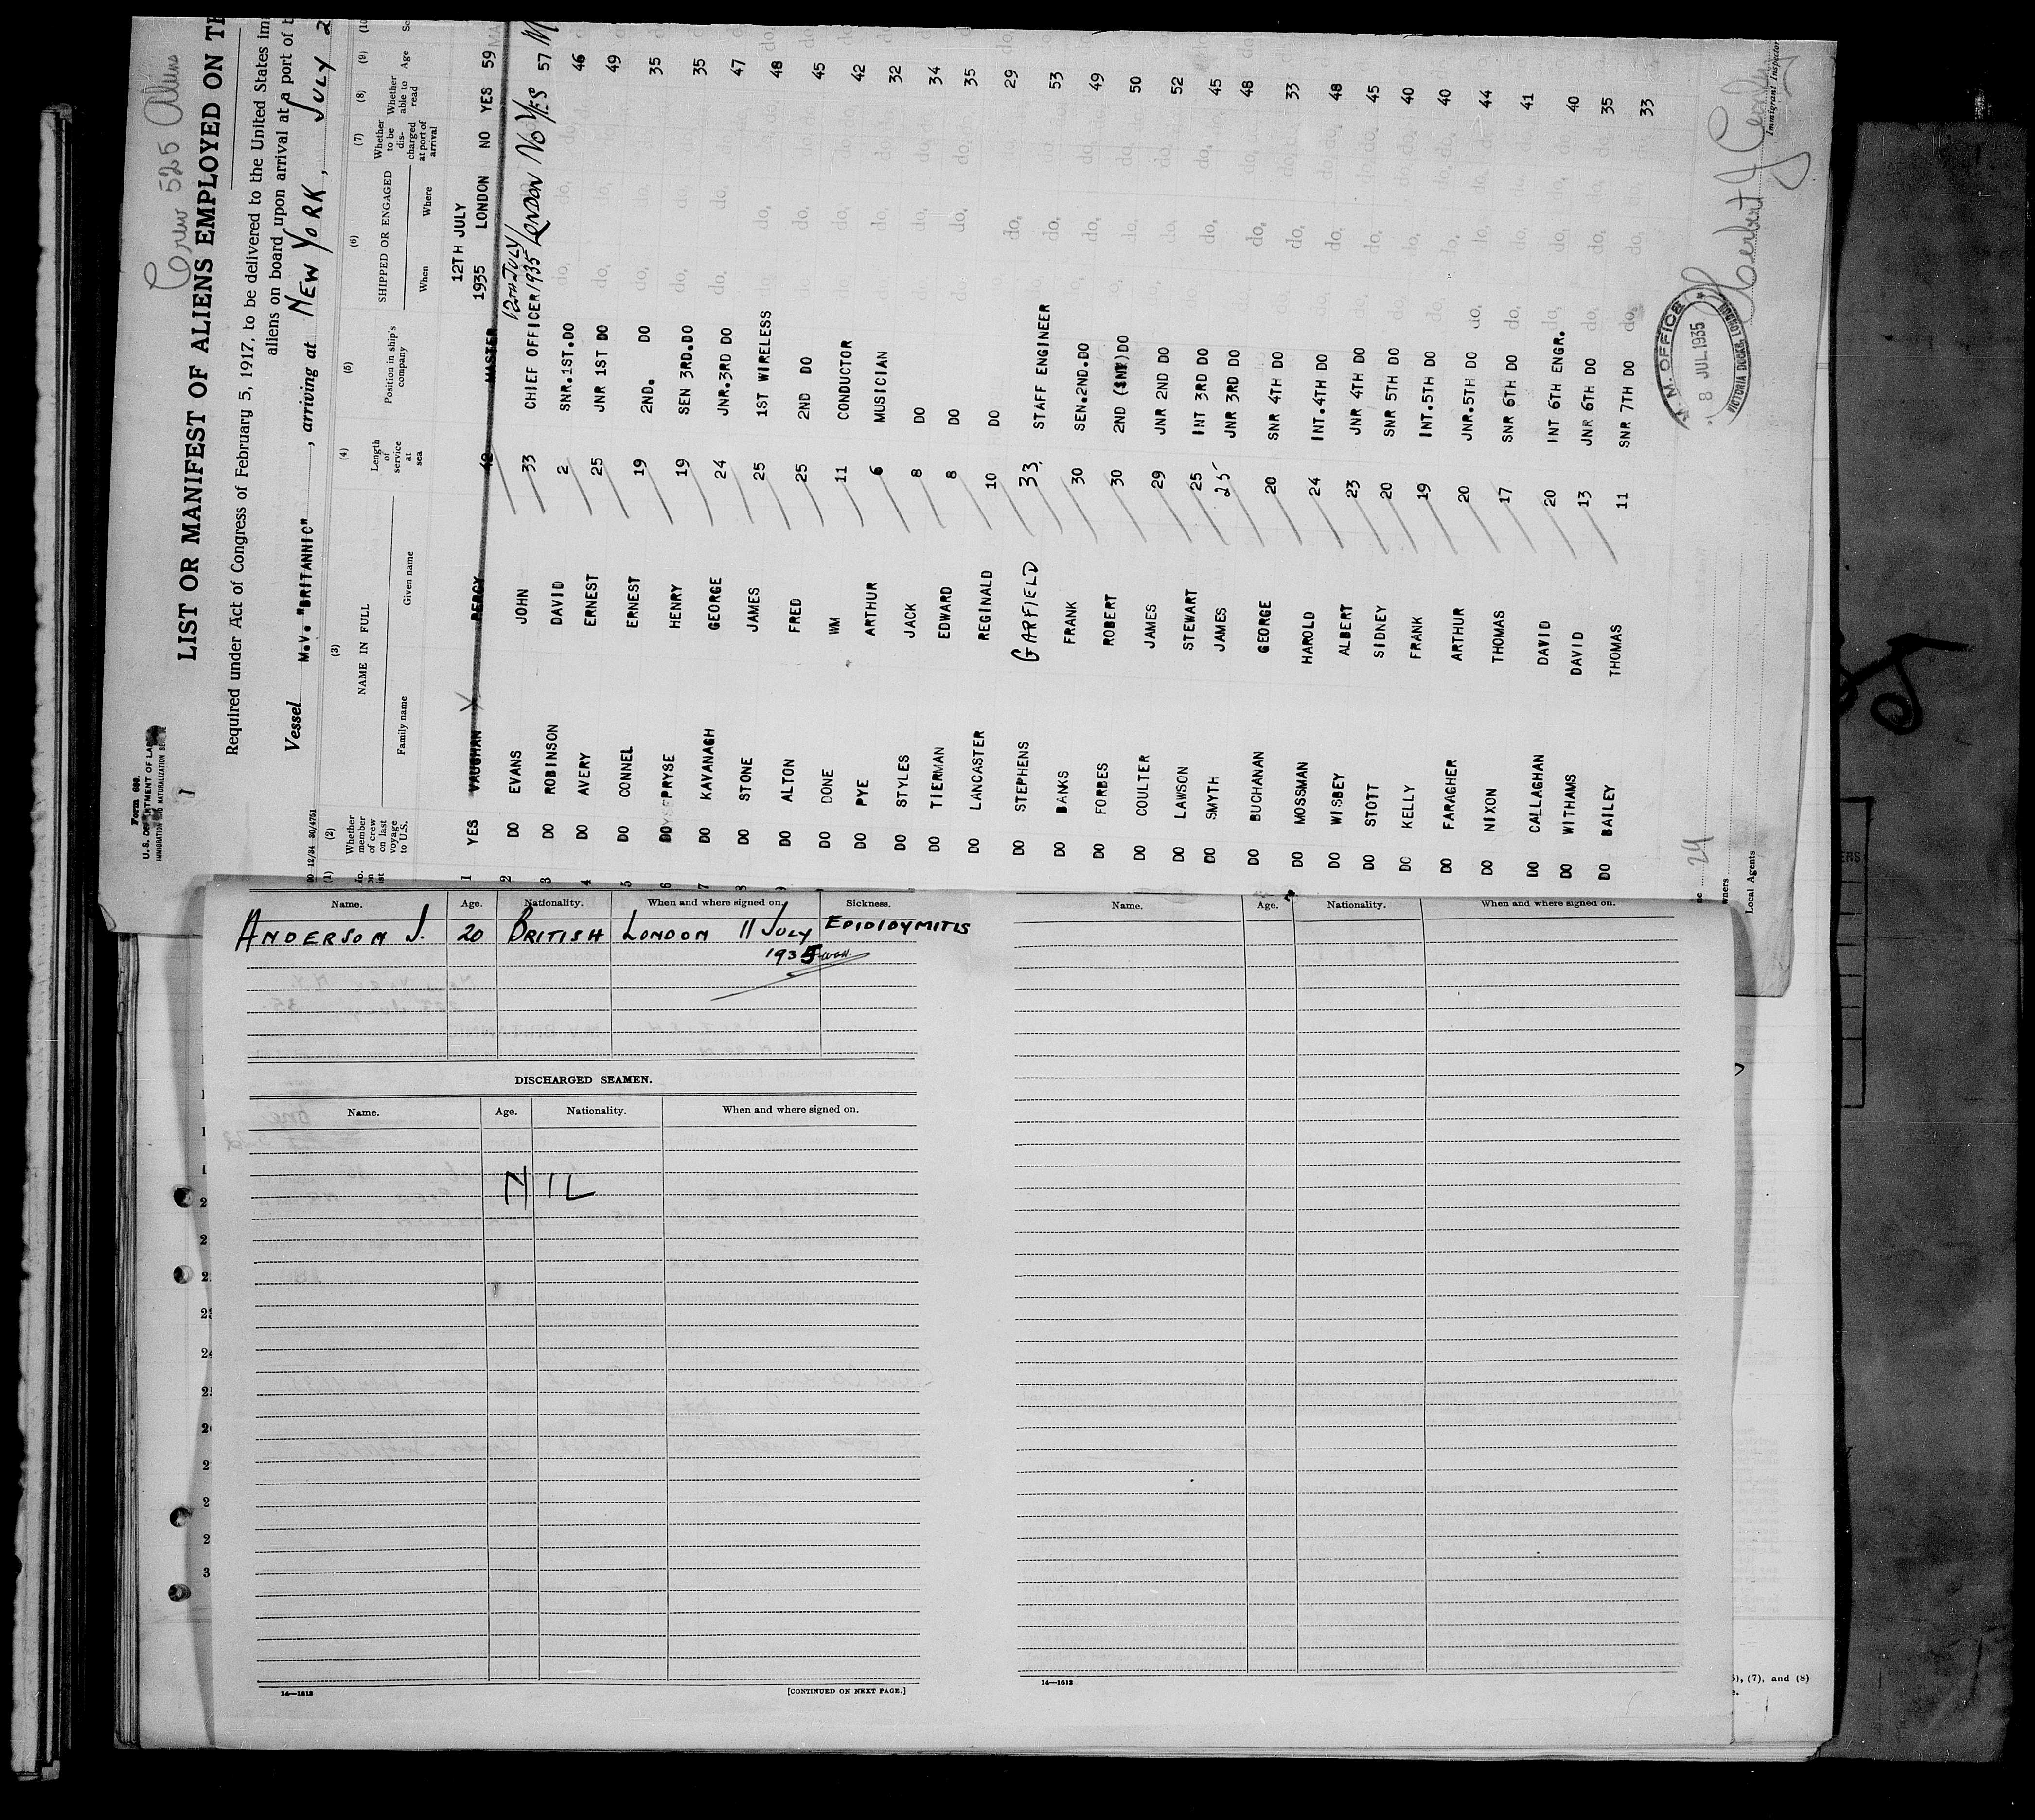 Crew 525 Aliens
Form 680.
U. S. DEPARTMENT OF LABOR
IMMIGRATION AND NATURALIZATION SERVICE
1
LIST OR MANIFEST OF ALIENS EMPLOYED ON
Required under Act of Congress of February 5, 1917, to be delivered to the United States
aliens on board upon arrival at a port of
Vessel M.V. "BRITANNIC", arriving at NEW YORK, JULY 2
12/34 30/4751
(1) (2) (3) (4) (5) (6) (7) (8) (9)
Whether member of crew on last voyage to U.S.
NAME IN FULL
Family name Given name
Length of service at sea
Position in ship's company
SHIPPED OR ENGAGED
When Where
Whether to be discharged at port of arrival
Whether able to read
Age
1 YES VAUGHAN PERCY 42 MASTER 12TH JULY 1935 LONDON NO YES 59
2 DO EVANS JOHN 33 CHIEF OFFICER 12TH JULY 1935 LONDON NO YES 57 M
3 DO ROBINSON DAVID 2 SNR.1ST.DO do. do. 46
4 DO AVERY ERNEST 25 JNR 1ST DO do. do. 49
5 DO CONNEL ERNEST 19 2ND. DO do. do. 35
6 DO PRYSE HENRY 19 SEN 3RD.DO do. do. 35
7 DO KAVANAGH GEORGE 24 JNR.3RD DO do. do. 47
8 DO STONE JAMES 25 1ST WIRELESS do. do. 48
DO ALTON FRED 25 2ND DO do. do. 45
DO DONE WM 11 CONDUCTOR do. do. 42
DO PYE ARTHUR 6 MUSICIAN do. do. 32
DO STYLES JACK 8 DO do. do. 34
DO TIERMAN EDWARD 8 DO do. do. 35
DO LANCASTER REGINALD 10 DO do. 29
DO STEPHENS GARFIELD 33 STAFF ENGINEER do. 53
DO BANKS FRANK 30 SEN.2ND.DO do. 49
DO FORBES ROBERT 30 2ND (INT) DO do. 50
DO COULTER JAMES 29 JNR 2ND DO do. 52
DO LAWSON STEWART 25 INT 3RD DO do. 45
DO SMYTH JAMES 25 JNR 3RD DO do. 48
DO BUCHANAN GEORGE 20 SNR 4TH DO do. 33
DO MOSSMAN HAROLD 24 INT.4TH DO do. 48
DO WISBEY ALBERT 23 JNR 4TH DO do. 45
DO STOTT SIDNEY 20 SNR 5TH DO do. 40
DO KELLY FRANK 19 INT.5TH DO do. 40
DO FARAGHER ARTHUR 20 JNR.5TH DO do. 44
DO NIXON THOMAS 17 SNR 6TH DO do. 41
DO CALLAGHAN DAVID 20 INT 6TH ENGR. do. 40
DO WITHAMS DAVID 13 JNR 6TH DO do. 35
DO BAILEY THOMAS 11 SNR 7TH DO do. 33
M. M. OFFICE
8 JUL 1935
VICTORIA DOCKS, LONDON
Immigrant Inspector
29
Local Agents
Name. Age. Nationality. When and where signed on. Sickness.
ANDERSON J. 20 BRITISH LONDON 11 JULY EPIDIDYMITIS
1935
DISCHARGED SEAMEN.
Name. Age. Nationality. When and where signed on.
NIL
14—1613 [CONTINUED ON NEXT PAGE.]
Name. Age. Nationality. When and where signed on.
14—1613
(7), and (8)